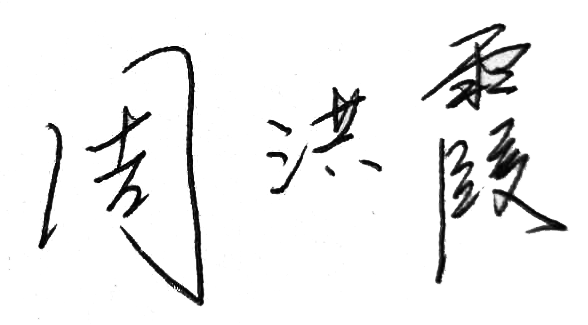 周洪霞